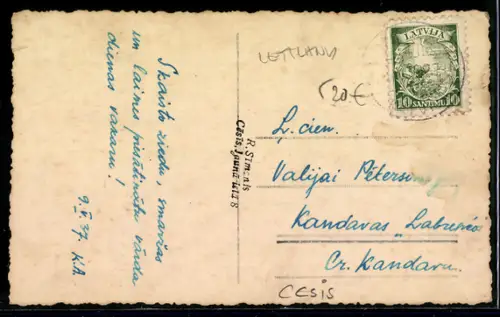 Skaisto ziedu, smaržas
un laimes piesātinātu vārda
dienas vakaru!
9.V.37. K.A.
R. Simanis
Cēsis, Jaunā iela 8
LETTLAND
20€
LATVIJA
10 SANTIMU 10
Ļ. cien.
Valijai Pētersu
Kandavas
Cr. Kandavu.
CESIS